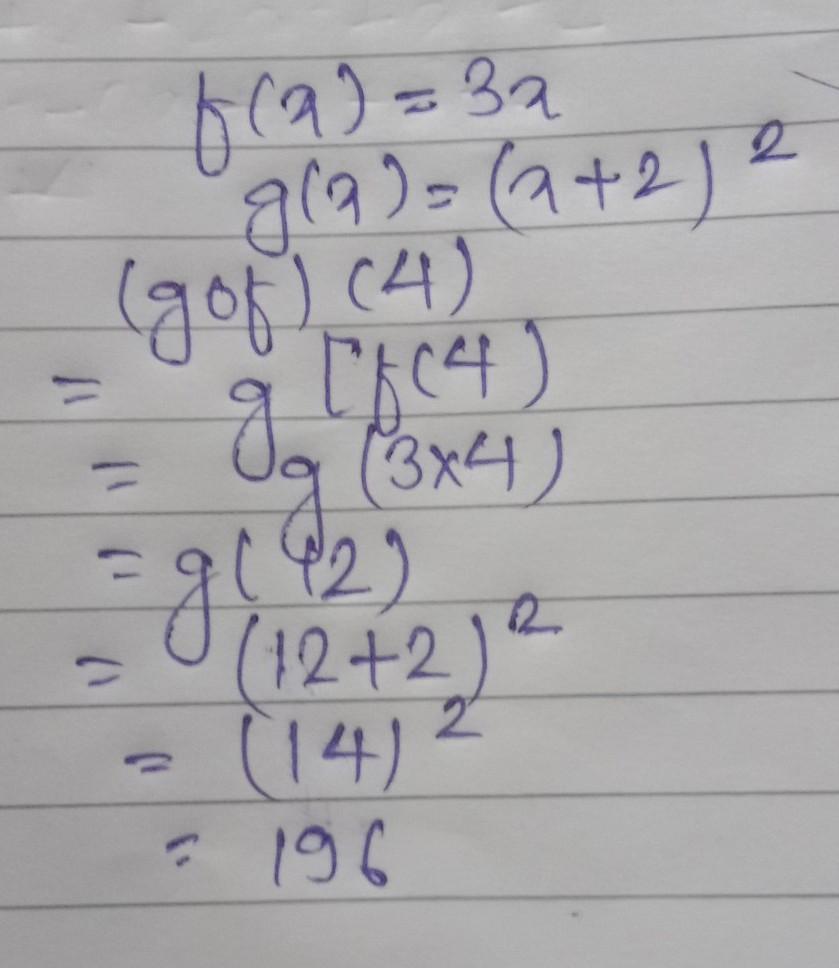 f(x) = 3x
g(x) = (x+2)²
(gof) (4)
= g [f(4)
= g (3×4)
= g(12)
= (12+2)²
= (14)²
= 196